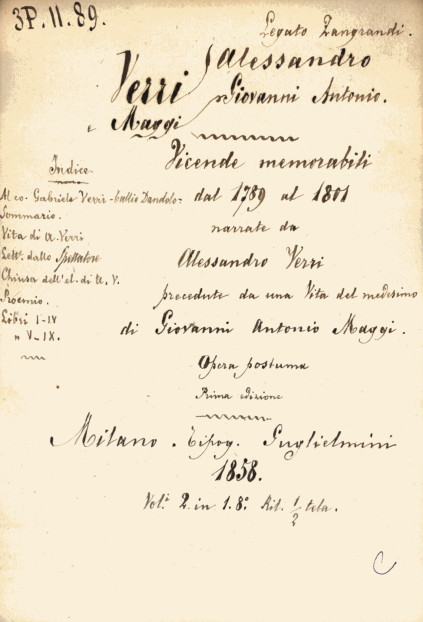 3P. 11. 89.
Legato Zangrandi.
Verri Alessandro
Maggi Giovanni Antonio.
Vicende memorabili
dal 1789 al 1801
narrate da
Alessandro Verri
precedute da una Vita del medesimo
di Giovanni Antonio Maggi.
Opera postuma
Prima edizione
Milano. Tipog. Guglielmini
1858.
Vol.i 2 in 1. 8.° Ril. 1/2 tela.
Indice
Al co. Gabriele Verri - Dandolo -
Sommario.
Vita di A. Verri
Lett. dallo Spettatore
Chiusa dell'el. di A. V.
Proemio.
Libri I-IV
" V-IX.
C